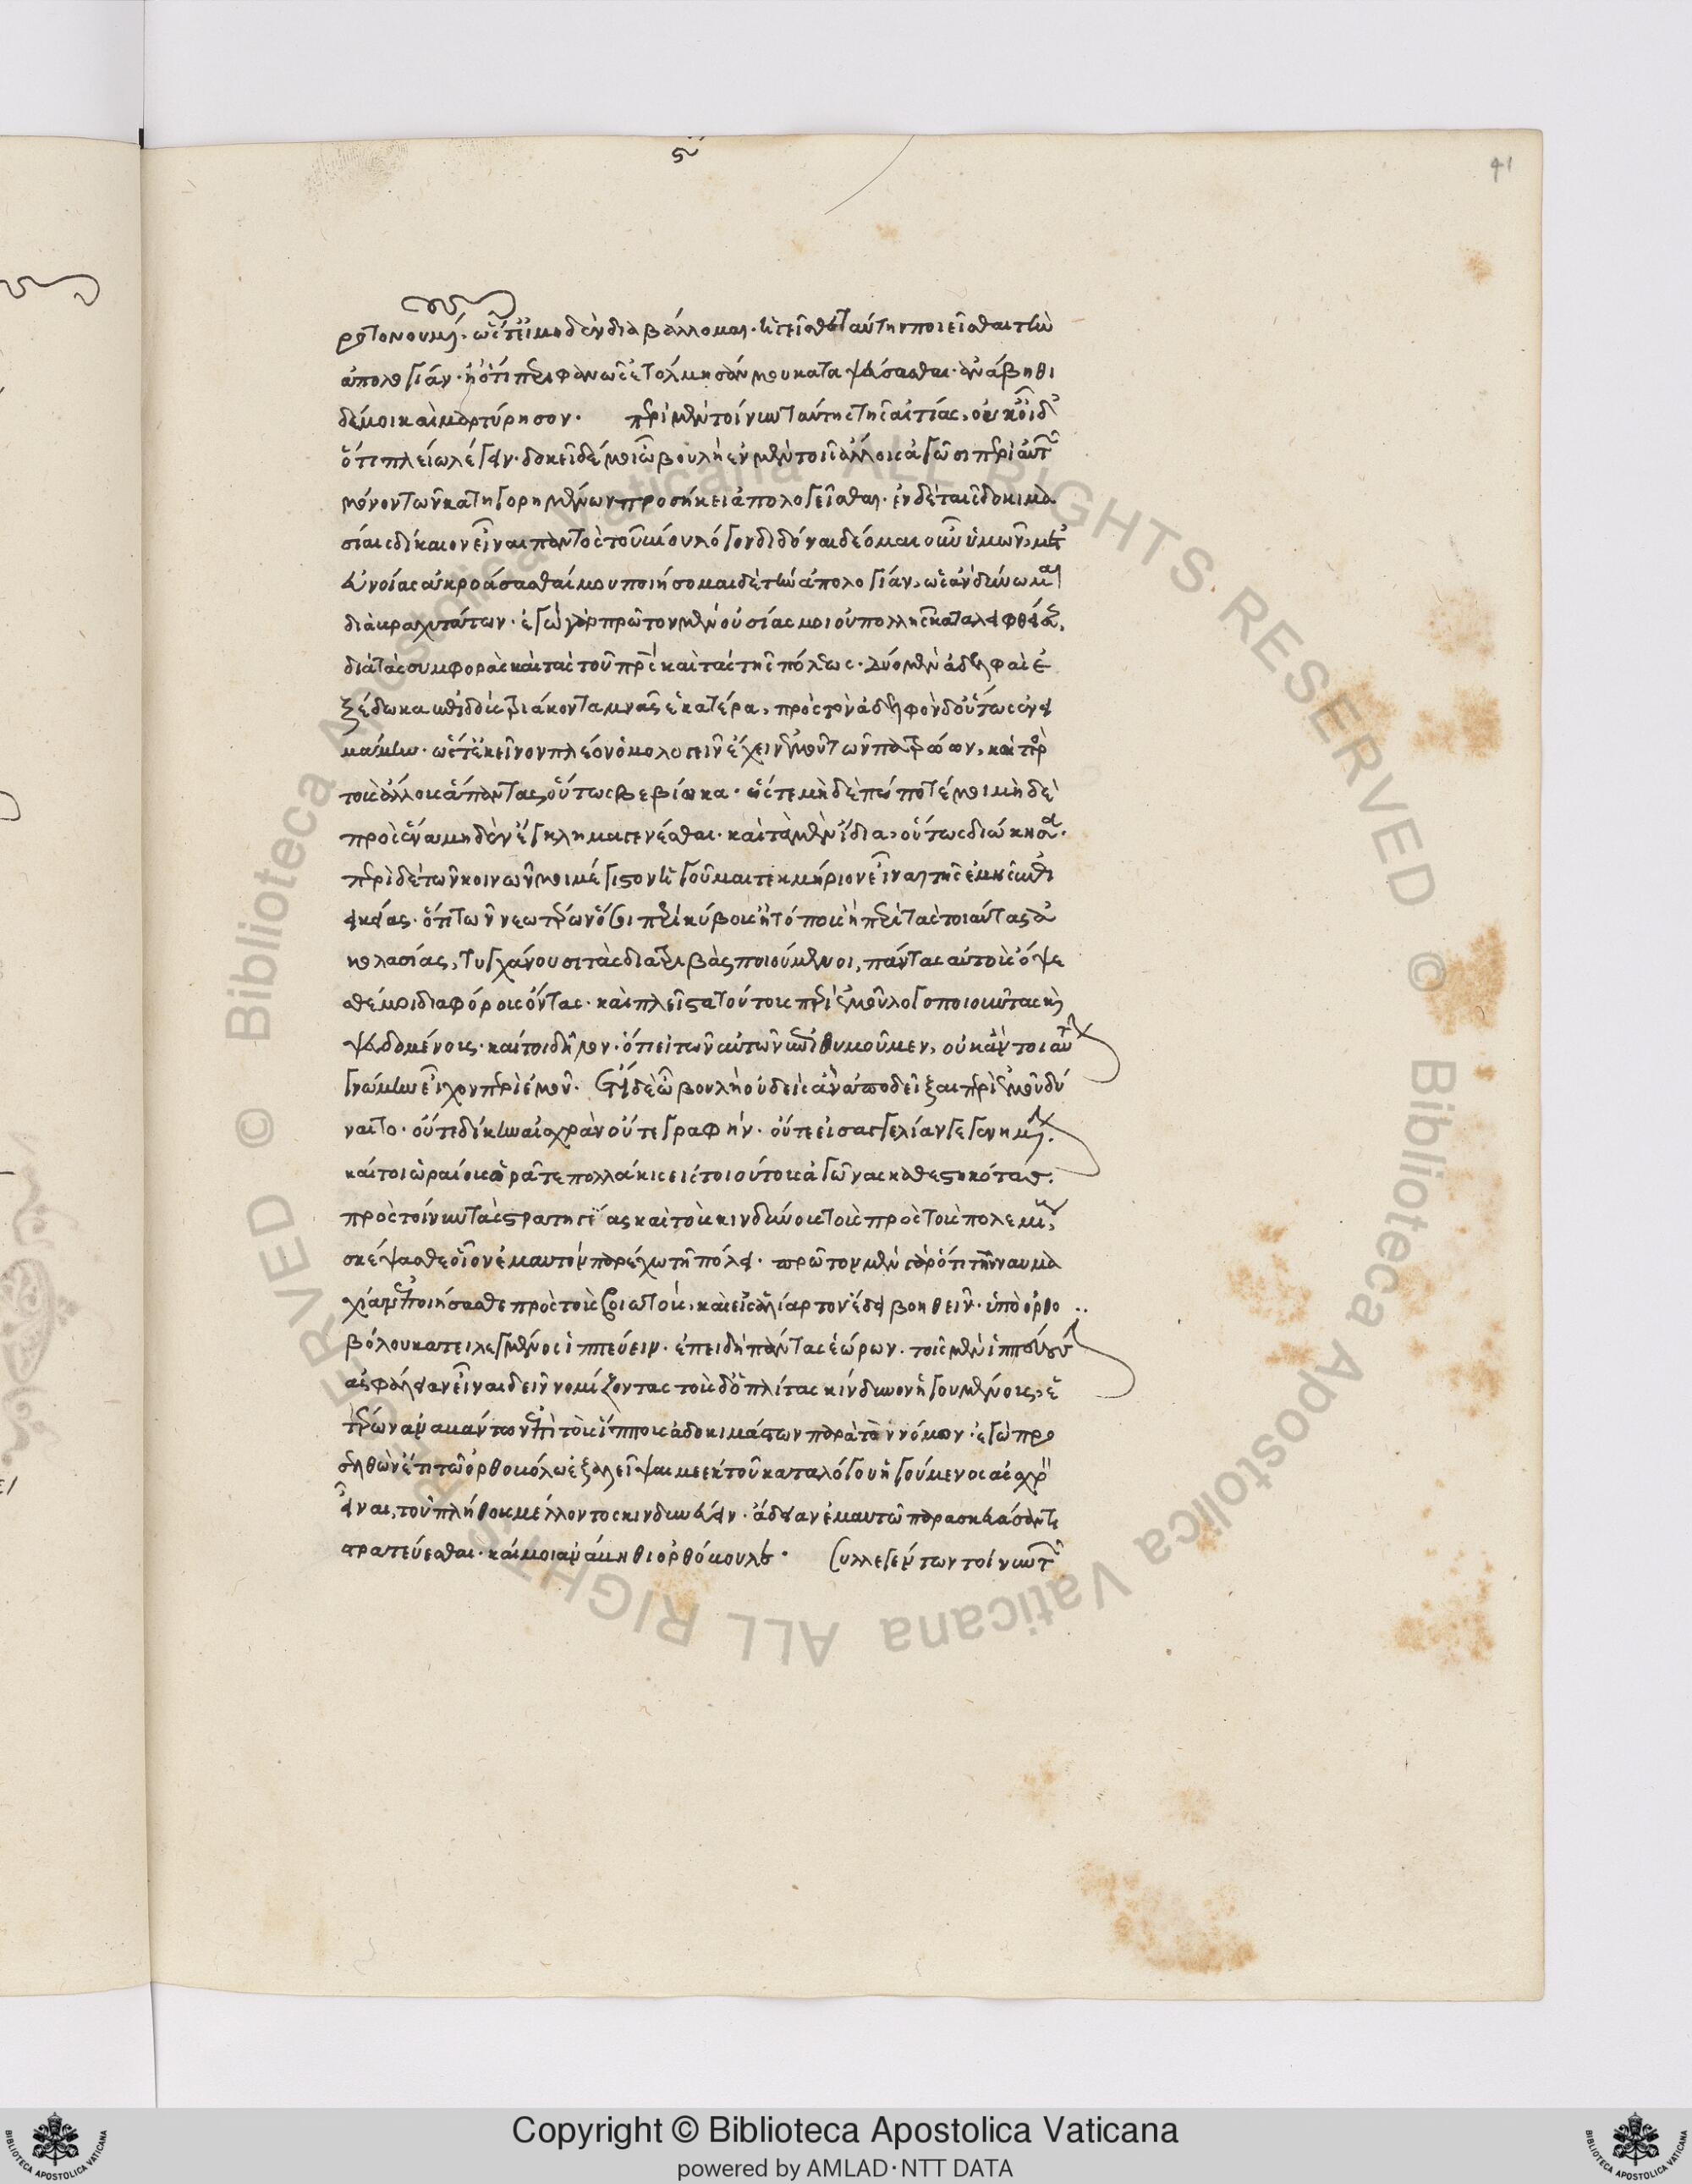 ς
41
ρότονουμαι. ὥστέ μηδὲν διαβάλλομαι. ἡγεῖσθε ταύτην ποιεῖσθαι τὴν
ἀπολογίαν. ἢ ὅτι περιφανῶς ἐτόλμησάν μου καταψεύσασθαι. ἀνάβηθι
δέ μοι καὶ μαρτύρησον. περὶ μὲν τοίνυν ταύτης τῆς αἰτίας, οὐκ οἶδ
ὅτι πλείω λέγειν. δοκεῖ δέ μοι ὦ βουλὴ ἐν μὲν τοῖς ἄλλοις ἀγῶσι περὶ αὐτῶν
μόνον τῶν κατηγορημένων προσήκει ἀπολογεῖσθαι. ἐν δὲ ταῖς δοκιμα
σίαις δίκαιον εἶναι παντὸς τοῦ βίου λόγον διδόναι δέομαι οὖν ὑμῶν, μετ
εὐνοίας ἀκροάσασθαί μου ποιήσομαι δὲ τὴν ἀπολογίαν, ὡς ἂν δύνωμαι
διὰ βραχυτάτων. ἐγὼ γὰρ πρῶτον μὲν οὐσίας μοι οὐ πολλῆς καταλειφθείσας,
διὰ τὰς συμφορὰς καὶ τὰς τοῦ πατρὸς καὶ τὰς τῆς πόλεως. δύο μὲν ἀδελφὰς ἐ
ξέδωκα ἐπιδοὺς τριάκοντα μνᾶς ἑκατέρα, πρὸς τὸν ἀδελφὸν δ οὕτως ἐνει
μάμην. ὥστ ἐκεῖνον πλέον ὁμολογεῖν ἔχειν ἐμοῦ τῶν πατρώων, καὶ πρὸς
τοὺς ἄλλους ἅπαντας οὕτως βεβίωκα. ὥστε μηδὲ πώποτέ μοι μηδὲ
πρὸς ἕνα μηδὲν ἔγκλημα γενέσθαι. καὶ τὰ μὲν ἴδια, οὕτως διώκηκα.
περὶ δὲ τῶν κοινῶν μοι μέγιστον ἡγοῦμαι τεκμήριον εἶναι τῆς ἐμῆς ἐπι
εικείας. ὅτι τῶν νεωτέρων ὅσοι περὶ κύβους ἢ πότους ἢ περὶ τὰς τοιαύτας ἀ
κολασίας, τυγχάνουσι τὰς διατριβὰς ποιούμενοι, πάντας αὐτοὺς ὄψε
σθέ μοι διαφόρους ὄντας. καὶ πλεῖστα τούτους περὶ ἐμοῦ λογοποιοῦντας καὶ
ψευδομένους. καίτοι δῆλον. ὅτι εἰ τῶν αὐτῶν ἐπιθυμοῦμεν, οὐκ ἂν τοιαύτην
γνώμην εἶχον περὶ ἐμοῦ. ἔτι δὲ ὦ βουλὴ οὐδεὶς ἂν ἀποδεῖξαι περὶ ἐμοῦ δύ
ναιτο. οὔτε δίκην αἰσχρὰν οὔτε γραφήν. οὔτε εἰσαγγελίαν γεγενημένην.
καίτοι ὡραίους ὁρᾶτε πολλάκις εἰς τοιούτους ἀγῶνας καθεστηκότας.
πρὸς τοίνυν τὰς στρατηγείας καὶ τοὺς κινδύνους τοὺς πρὸς τοὺς πολεμίους,
σκέψασθε οἷον ἐμαυτὸν παρέχω τῇ πόλει. πρῶτον μὲν γὰρ ὅτι τὴν ναυμα
χίαν ἐποιήσασθε πρὸς τοὺς βοιωτούς, καὶ εἰς ἁλίαρτον ἔδει βοηθεῖν. ὑπὸ ὀρθο ..
βόλου κατειλεγμένος ἱππεύειν. ἐπειδὴ πάντας ἑώρων. τοῖς μὲν ἱππεύουσιν
ἀσφάλειαν εἶναι δεῖν νομίζοντας τοῖς δ ὁπλίταις κίνδυνον ἡγουμένους, ἑ
τέρων ἀναβάντων ἐπὶ τοὺς ἵππους ἀδοκιμάστων παρὰ τὸν νόμον. ἐγὼ προ
σελθὼν ἔτι τῷ ὀρθοβόλῳ ἐξαλεῖψαί με ἐκ τοῦ καταλόγου ἡγούμενος αἰσχρὸν
εἶναι, τοῦ πλήθους μέλλοντος κινδυνεύειν. ἄδειαν ἐμαυτῷ παρασκευάσαντι
στρατεύεσθαι. καί μοι ἀνάβηθι ὀρθόβουλε. Συλλεγέντων τοίνυν τῶν